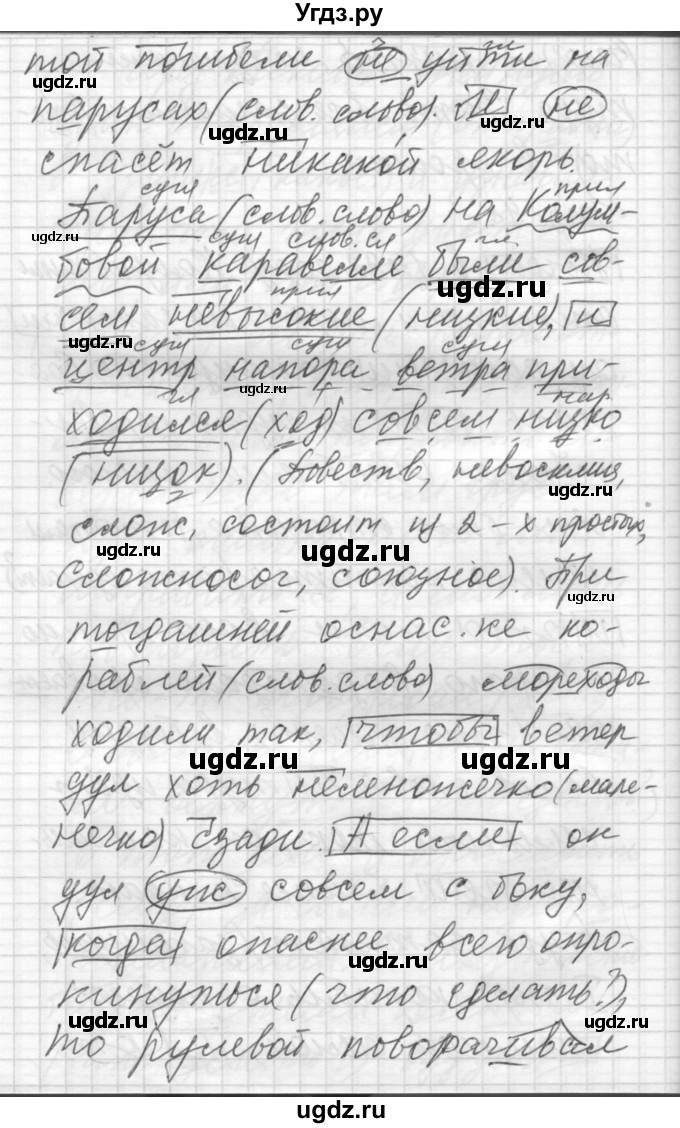 Угдз.ру
той погибели не уйти на
парусах (слов. слово). И не
спасёт никакой якорь.
сущ прил
Паруса (слов. слово) на Колум-
сущ слов.сл гл
бовой каравелле были сов-
прил
сем невысокие (низкие), и
сущ сущ сущ
центр напора ветра при-
гл нар
ходился (ход) совсем низко
(низок). (Повеств, невосклиц,
слож, состоит из 2-х простых,
Сложносоч, союзное). При
тогдашней оснас.ке ко-
раблей (слов. слово) мореходы
ходили так, чтобы ветер
дул хоть немножечко (мале-
нечко) сзади. А если он
дул уж совсем с боку,
когда опаснее всего опро-
кинуться (что сделать?),
то рулевой поворачивал
ugdz.ru